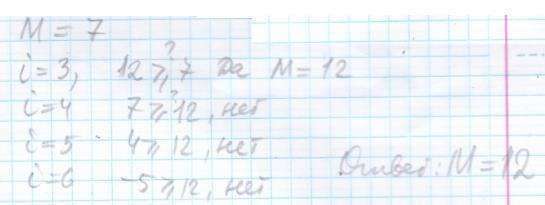 M = 7
i=3, 12 ⩾? 7 да M=12
i=4 7 ⩾? 12, нет
i=5 4 ⩾ 12, нет
i=6 -5 ⩾ 12, нет
Ответ: M=12